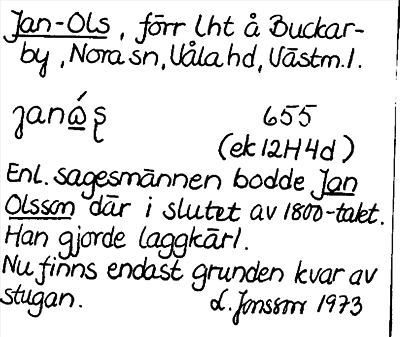 Jan-Ols, förr lht å Buckar-
by, Nora sn, Våla hd, Västm. l.
655
(ek 12H4d)
Enl. sagesmännen bodde Jan
Olsson där i slutet av 1800-talet.
Han gjorde laggkärl.
Nu finns endast grunden kvar av
stugan. L. Jonsson 1973